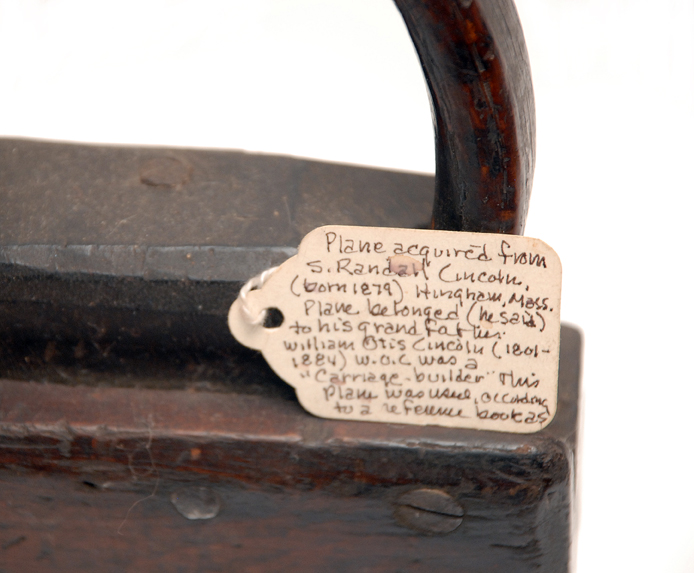 Plane acquired from
S. Randall Lincoln,
(born 1879) Hingham, Mass.
Plane belonged (he said)
to his grand father:
William Otis Lincoln (1801-
1884) W.O.L was a
"Carriage-builder" This
Plane was used, according
to a reference book as